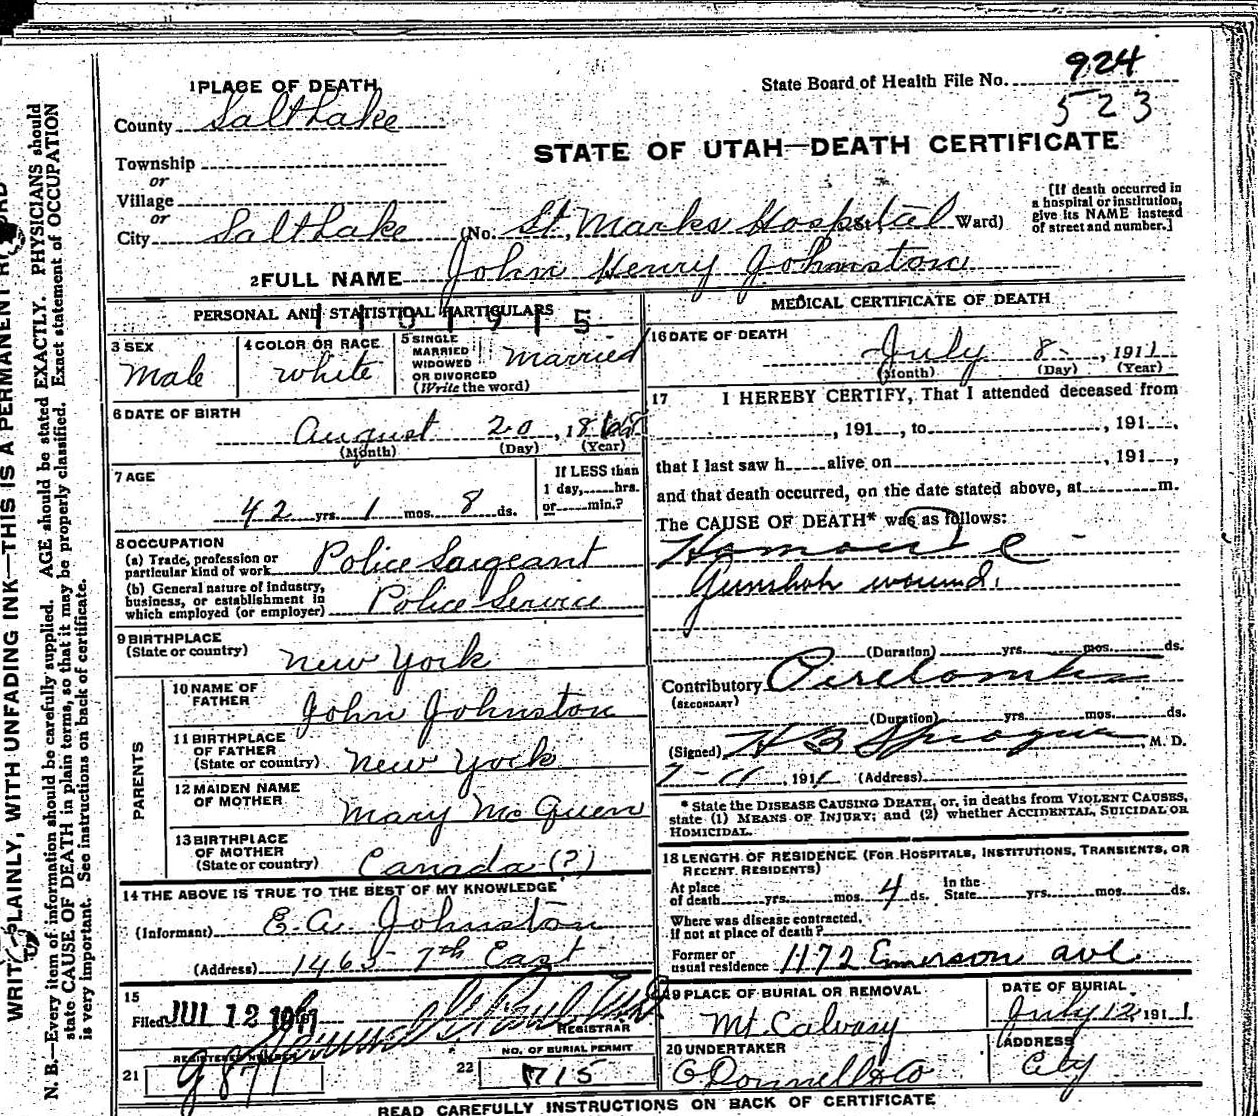 924
State Board of Health File No.
523
1 PLACE OF DEATH
County Salt Lake
STATE OF UTAH—DEATH CERTIFICATE
Township
or
Village
or
City Salt Lake (No. St. Marks Hospital St., Ward)
[If death occurred in
a hospital or institution,
give its NAME instead
of street and number.]
2 FULL NAME John Henry Johnston
PERSONAL AND STATISTICAL PARTICULARS
3 SEX
Male
4 COLOR OR RACE
white
5 SINGLE
MARRIED
WIDOWED
OR DIVORCED
(Write the word)
married
6 DATE OF BIRTH
August 20, 1868
(Month) (Day) (Year)
7 AGE
42 yrs. 1 mos. 8 ds.
If LESS than
1 day, hrs.
or min.?
8 OCCUPATION
(a) Trade, profession or
particular kind of work Police Sargeant
(b) General nature of industry,
business, or establishment in
which employed (or employer) Police Service
9 BIRTHPLACE
(State or country) New York
PARENTS
10 NAME OF
FATHER John Johnston
11 BIRTHPLACE
OF FATHER
(State or country) New York
12 MAIDEN NAME
OF MOTHER Mary McQuen
13 BIRTHPLACE
OF MOTHER
(State or country) Canada (?)
14 THE ABOVE IS TRUE TO THE BEST OF MY KNOWLEDGE
(Informant) E.A. Johnston
(Address) 1465 7th East
15
Filed JUL 12 1911
REGISTRAR
REGISTERED NUMBER
21 987
NO. OF BURIAL PERMIT
22 715
MEDICAL CERTIFICATE OF DEATH
16 DATE OF DEATH
July 8, 1911
(Month) (Day) (Year)
17 I HEREBY CERTIFY, That I attended deceased from
, 191 , to , 191 .
that I last saw h alive on , 191 ,
and that death occurred, on the date stated above, at m.
The CAUSE OF DEATH* was as follows:
Gunshot wound.
(Duration) yrs. mos. ds.
Contributory
(SECONDARY)
(Duration) yrs. mos. ds.
(Signed) H B Sprague, M. D.
7-11, 1911 (Address)
* State the DISEASE CAUSING DEATH, or, in deaths from VIOLENT CAUSES,
state (1) MEANS OF INJURY; and (2) whether ACCIDENTAL, SUICIDAL OR
HOMICIDAL.
18 LENGTH OF RESIDENCE (FOR HOSPITALS, INSTITUTIONS, TRANSIENTS, OR
RECENT RESIDENTS)
At place
of death yrs. mos. 4 ds.
In the
State yrs. mos. ds.
Where was disease contracted,
if not at place of death?
Former or
usual residence 1172 Emerson ave.
19 PLACE OF BURIAL OR REMOVAL
Mt. Calvary
DATE OF BURIAL
July 12, 1911
20 UNDERTAKER
O'Donnell & Co
ADDRESS
City
READ CAREFULLY INSTRUCTIONS ON BACK OF CERTIFICATE
WRITE PLAINLY, WITH UNFADING INK—THIS IS A PERMANENT RECORD
N. B.—Every item of information should be carefully supplied. AGE should be stated EXACTLY. PHYSICIANS should
state CAUSE OF DEATH in plain terms, so that it may be properly classified. Exact statement of OCCUPATION
is very important. See instructions on back of certificate.